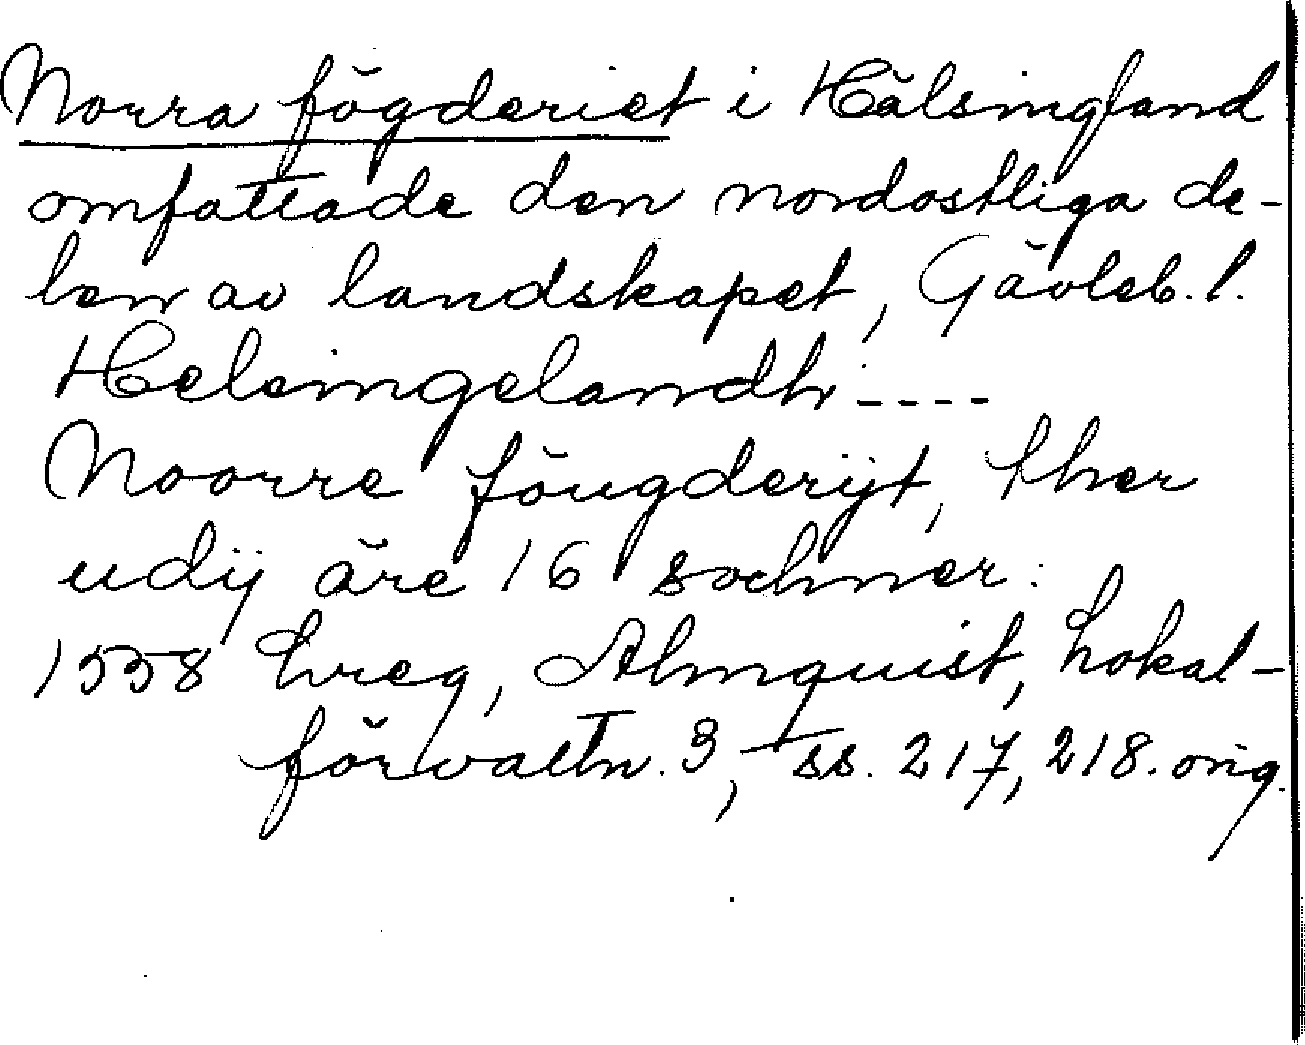 Norra fögderiet i Hälsingland
omfattade den nordostliga de-
len av landskapet, Gävleb. l.
Helsingelandh ----
Noorre föugderijt, ther
udij äre 16 sochner:
1558 Lreg, Almquist, Lokal-
förvaltn. 3, ss. 217, 218. orig.